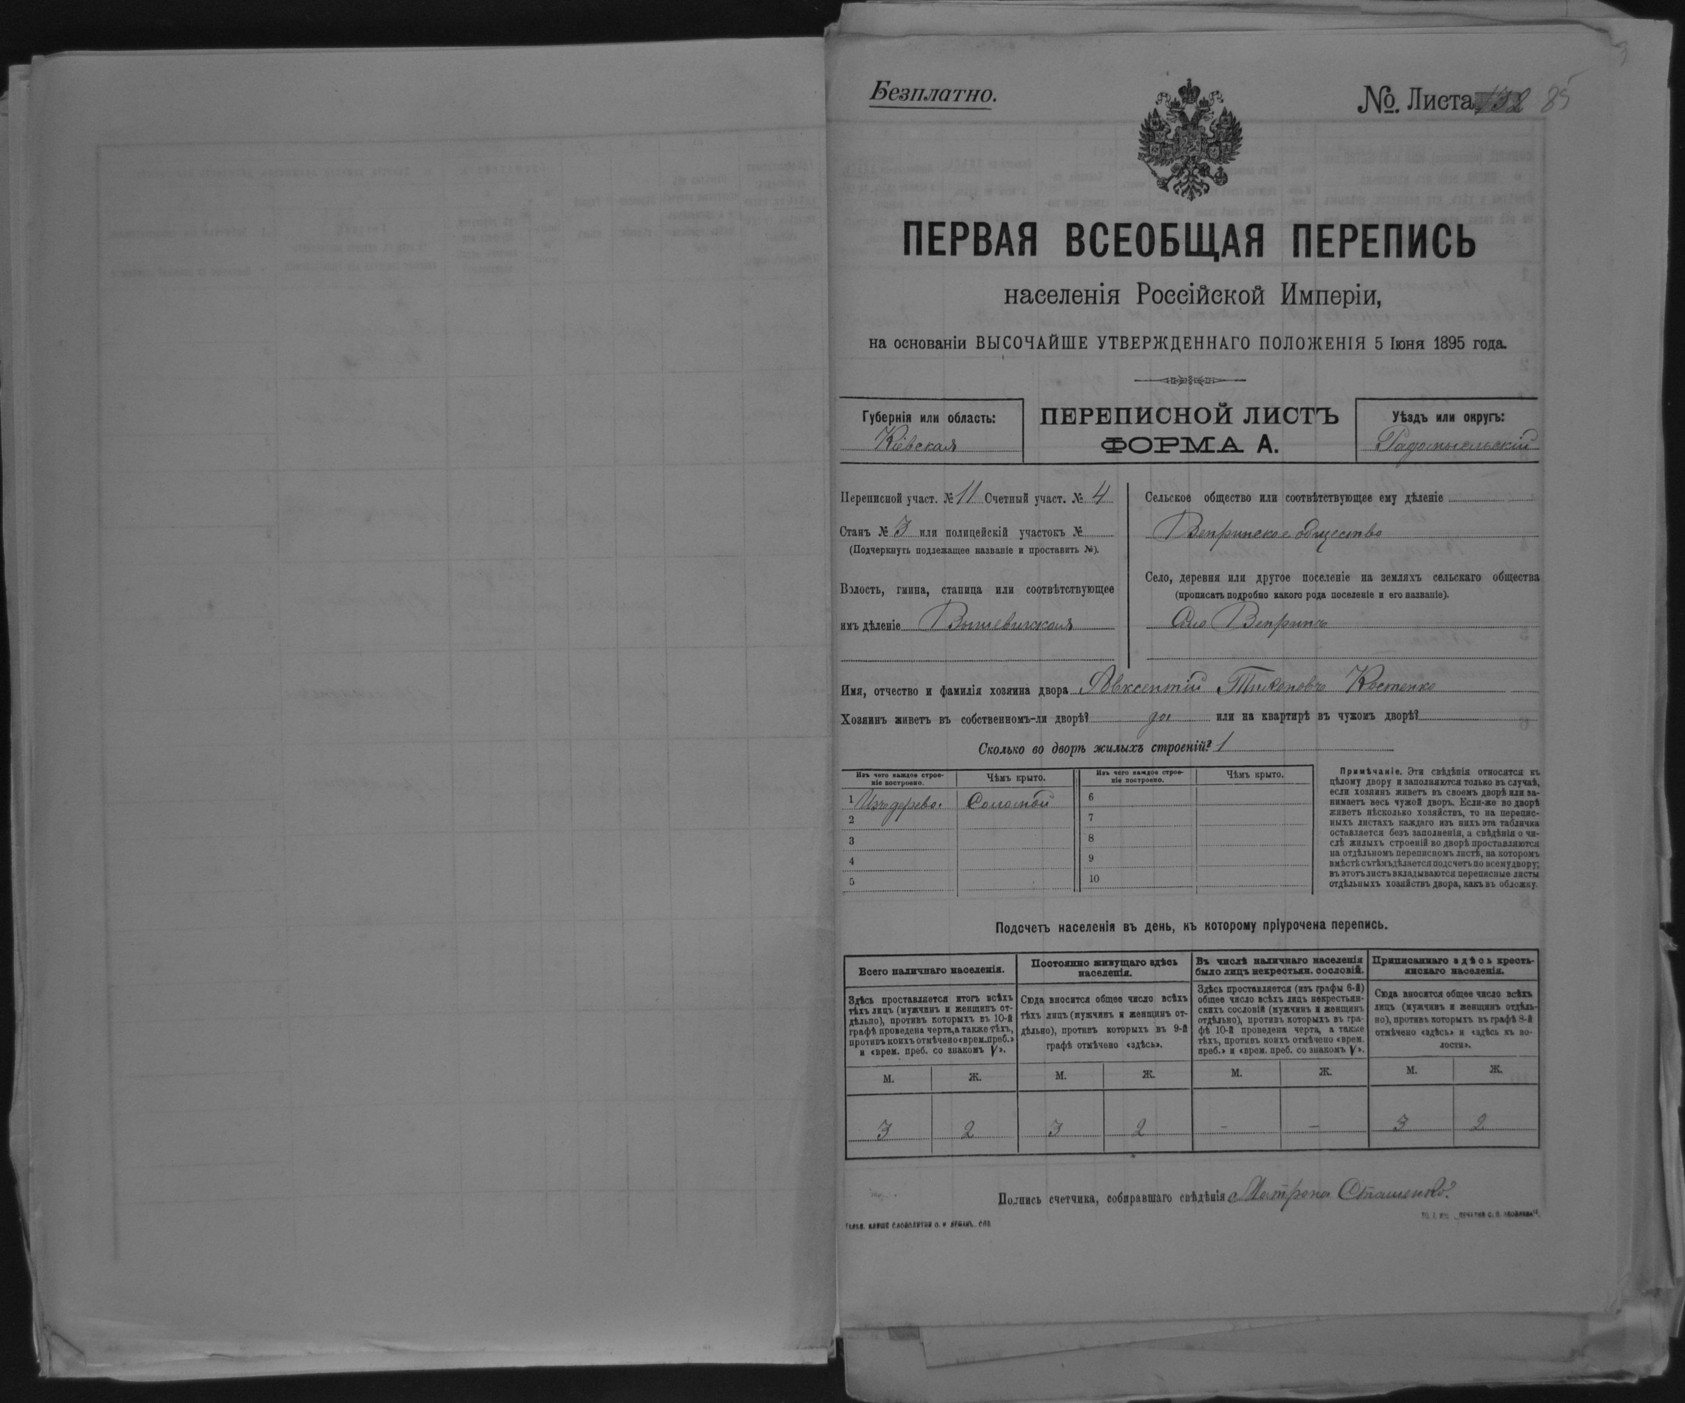 Безплатно.
№. Листа 132 85
ПЕРВАЯ ВСЕОБЩАЯ ПЕРЕПИСЬ
населенія Россійской Имперіи,
на основаніи ВЫСОЧАЙШЕ УТВЕРЖДЕННАГО ПОЛОЖЕНІЯ 5 Іюня 1895 года.
Губернія или область:
Кіевская
ПЕРЕПИСНОЙ ЛИСТЪ
ФОРМА А.
Уѣздъ или округъ:
Радомысльскій
Переписной участ. № 11 Счетный участ. № 4
Станъ № 3 или полицейскій участокъ №
(Подчеркнуть подлежащее названіе и проставить №).
Волость, гмина, станица или соотвѣтствующее
имъ дѣленіе Вышевичская
Сельское общество или соотвѣтствующее ему дѣленіе
Вепринское общество
Село, деревня или другое поселеніе на земляхъ сельскаго общества
(прописать подробно какого рода поселеніе и его названіе).
Село Вепринъ
Имя, отчество и фамилія хозяина двора Авксентій Тихоновъ Костенко
Хозяинъ живетъ въ собственномъ-ли дворѣ? да или на квартирѣ въ чужомъ дворѣ?
Сколько во дворѣ жилыхъ строеній? 1
Изъ чего каждое строеніе построено. Чѣмъ крыто. Изъ чего каждое строеніе построено. Чѣмъ крыто.
1 Изъ дерева Соломой 6
2 7
3 8
4 9
5 10
Примѣчаніе. Эти свѣдѣнія относятся къ
цѣлому двору и заполняются только въ случаѣ,
если хозяинъ живетъ въ своемъ дворѣ или за-
нимаетъ весь чужой дворъ. Если-же во дворѣ
живетъ нѣсколько хозяйствъ, то на перепис-
ныхъ листахъ каждаго изъ нихъ эта табличка
оставляется безъ заполненія, а свѣдѣнія о чи-
слѣ жилыхъ строеній во дворѣ проставляются
на отдѣльномъ переписномъ листѣ, на которомъ
вмѣстѣ съ тѣмъ дѣлается подсчетъ по всему двору;
въ этотъ листъ вкладываются переписные листы
отдѣльныхъ хозяйствъ двора, какъ въ обложку.
Подсчетъ населенія въ день, къ которому пріурочена перепись.
Всего наличнаго населенія.
Здѣсь проставляется итогъ всѣхъ
тѣхъ лицъ (мужчинъ и женщинъ от-
дѣльно), противъ которыхъ въ 10-й
графѣ проведена черта, а также тѣхъ,
противъ коихъ отмѣчено «врем. преб.»
и «врем. преб. со знакомъ V».
Постоянно живущаго здѣсь
населенія.
Сюда вносится общее число всѣхъ
тѣхъ лицъ (мужчинъ и женщинъ от-
дѣльно), противъ которыхъ въ 9-й
графѣ отмѣчено «здѣсь».
Въ числѣ наличнаго населенія
было лицъ некрестьян. сословій.
Здѣсь проставляется (изъ графы 6-й)
общее число всѣхъ лицъ некрестьян-
скихъ сословій (мужчинъ и женщинъ
отдѣльно), противъ которыхъ въ гра-
фѣ 10-й проведена черта, а также
тѣхъ, противъ коихъ отмѣчено «врем.
преб.» и «врем. преб. со знакомъ V».
Приписаннаго здѣсь кресть-
янскаго населенія.
Сюда вносится общее число всѣхъ
лицъ (мужчинъ и женщинъ отдѣль-
но), противъ которыхъ въ графѣ 8-й
отмѣчено «здѣсь» и «здѣсь въ во-
лости».
М. Ж. М. Ж. М. Ж. М. Ж.
3 2 3 2 - - 3 2
Подпись счетчика, собиравшаго свѣдѣнія Сташенко